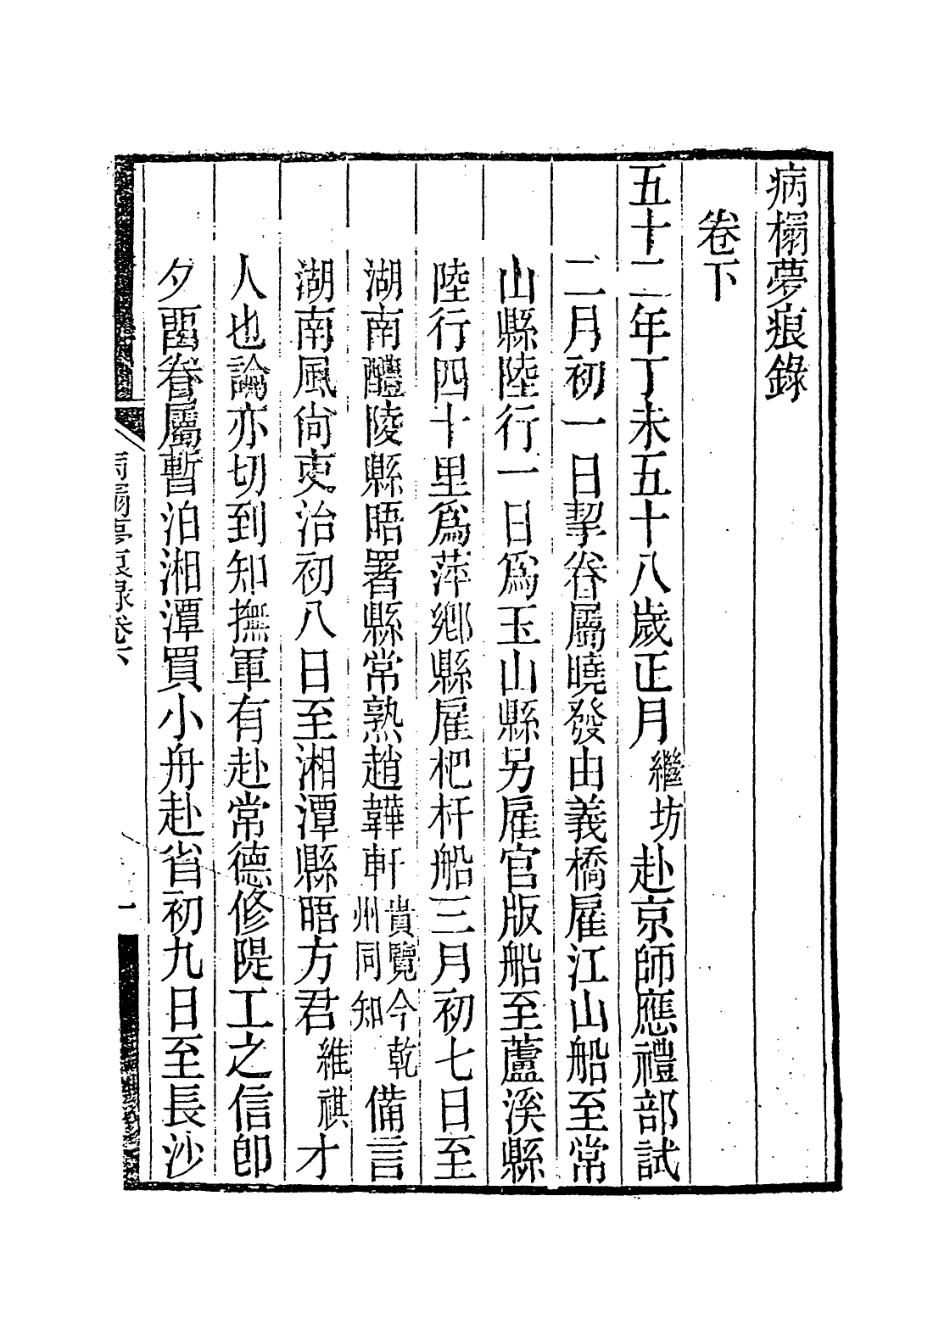 病榻夢痕錄
卷下
五十二年丁未五十八歲正月繼坊赴京師應禮部試
二月初一日挈眷屬曉發由義橋雇江山船至常
山縣陸行一日爲玉山縣另雇官版船至蘆溪縣
陸行四十里爲萍鄉縣雇杷杆船三月初七日至
湖南醴陵縣晤署縣常熟趙韡軒貴覽今乾州同知備言
湖南風尙吏治初八日至湘潭縣晤方君維祺才
人也論亦切到知撫軍有赴常德修隄工之信卽
夕畱眷屬暫泊湘潭買小舟赴省初九日至長沙
病榻夢痕錄卷下
一